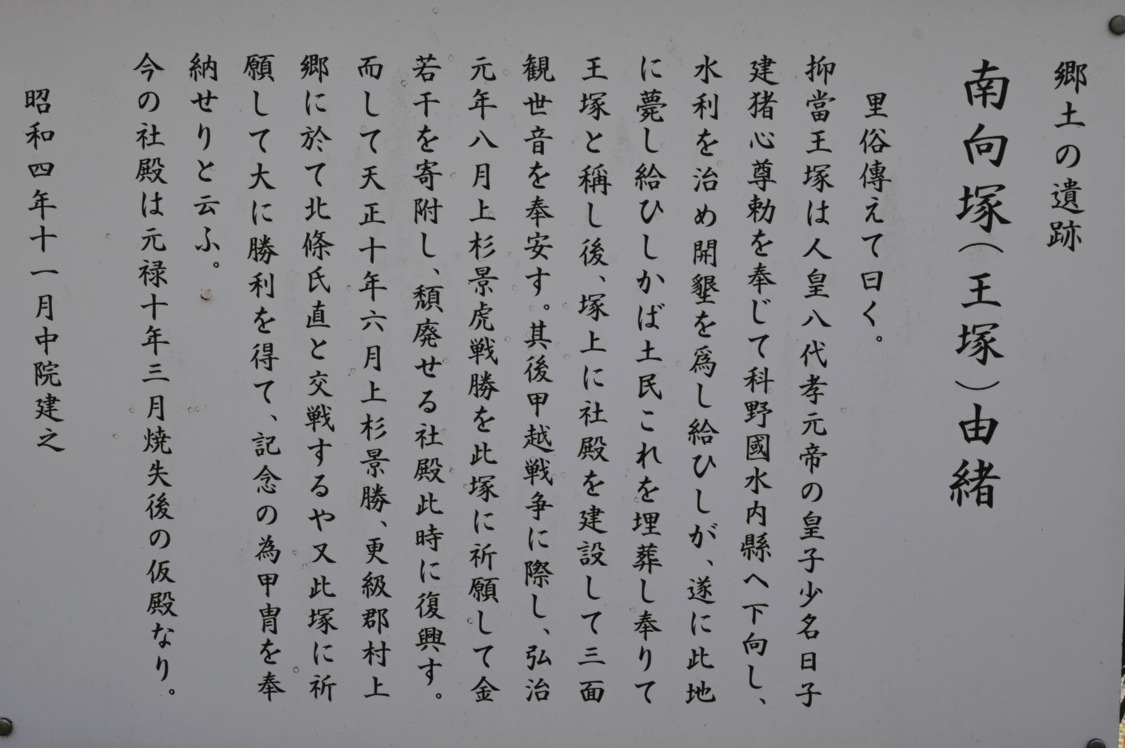 郷土の遺跡
南向塚（王塚）由緒
里俗傳えて曰く。
抑當王塚は人皇八代孝元帝の皇子少名日子
建猪心尊勅を奉じて科野國水内縣へ下向し、
水利を治め開墾を爲し給ひしが、遂に此地
に薨し給ひしかば土民これを埋葬し奉りて
王塚と稱し後、塚上に社殿を建設して三面
観世音を奉安す。其後甲越戦争に際し、弘治
元年八月上杉景虎戦勝を此塚に祈願して金
若干を寄附し、頽廃せる社殿此時に復興す。
而して天正十年六月上杉景勝、更級郡村上
郷に於て北條氏直と交戦するや又此塚に祈
願して大に勝利を得て、記念の為甲冑を奉
納せりと云ふ。
今の社殿は元禄十年三月焼失後の仮殿なり。
昭和四年十一月中院建之